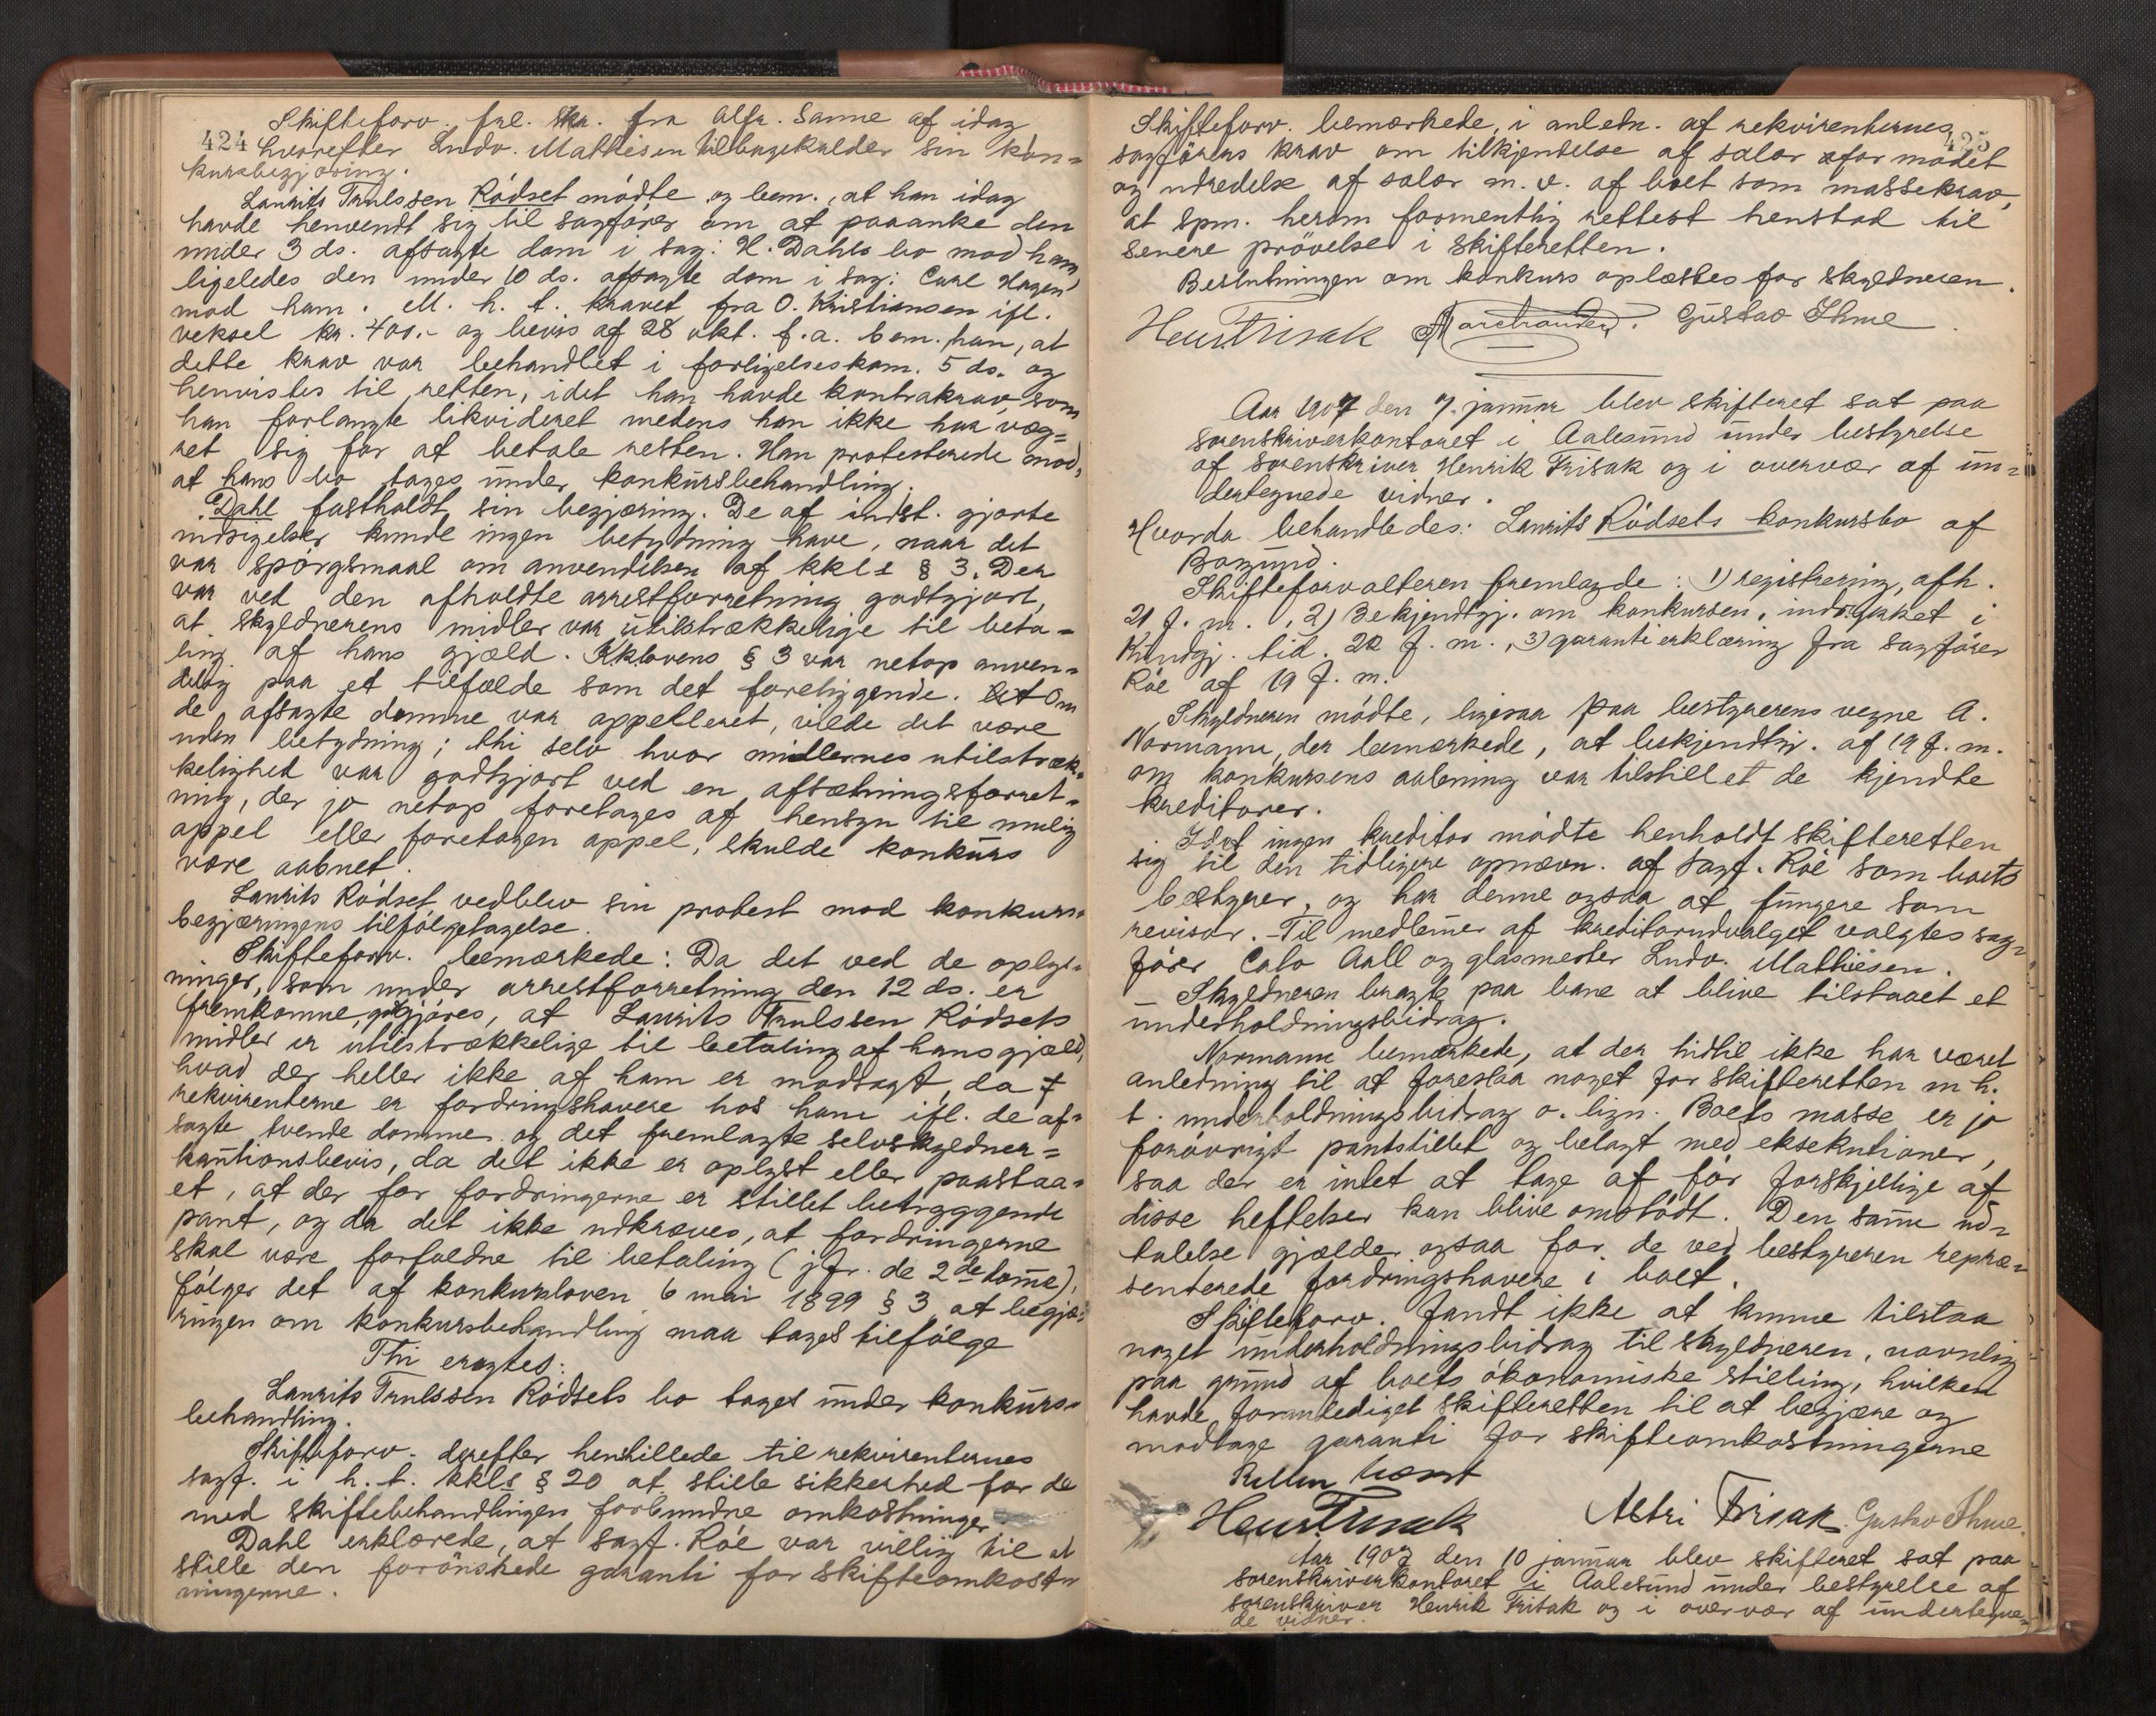 424
Skifteforv. frl. skr. fra Alfr. Sanne af idag
hvorefter Ludv. Mathiesen tilbagekalder sin kon=
kursbegjæring.
Laurits Trulssen Rödset mödte og bem., at han idag
havde henvendt sig til sagförer om at paaanke den
under 3 ds. afsagte dom i sag: H. Dahls bo mod ham
ligeledes den under 10 ds. afsagte dom i sag: Carl Hagen
mod ham. M. h. t. kravet fra O. Kristiansen ifl.
veksel kr. 400.- og bevis af 28 okt. f.a. bem. han, at
dette krav var behandlet i forligelseskom. 5 ds. og
henvistes til retten, idet han havde kontrakrav, som
han forlangte likvideret medens han ikke har væg=
ret sig for at betale resten. Han protesterede mod,
at hans bo tages under konkursbehandling.
Dahl fastholdt sin begjæring. De af indst. gjorte
indsigelser kunde ingen betydning have, naar det
var spörgsmaal om anvendelsen af kkls § 3. Der
var ved den afholdte arrestforretning godtgjort,
at skyldnerens midler var utilstrækkelige til beta=
ling af hans gjæld. Kklovens § 3 var netop anven=
delig paa et tilfælde som det foreliggende. Om
de afsagte domme var appelleret, vilde det være
uden betydning; thi selv hvor midlernes utilstræk=
kelighed var godtgjort ved en afsætningsforret=
ning, der jo netop foretages af hensyn til mulig
appel eller foretagen appel, skulde konkurs
være aabnet.
Laurits Rödset vedblev sin protest mod konkurs=
begjæringens tilfölgetagelse.
Skifteforv. bemærkede: Da det ved de oplys=
ninger, som under arrestforretning den 12 ds. er
fremkomne, godtgjöres, at Laurits Trulssen Rödsets
midler er utilstrækkelige til betaling af hans gjæld,
hvad der heller ikke af ham er modsagt, da
rekvirenterne er fordringshavere hos ham ifl. de af=
sagte tvende domme og det fremlagte selvskyldner=
kautionsbevis, da det ikke er oplyst eller paastaa=
et, at der for fordringerne er stillet betryggende
pant, og da det ikke udkræves, at fordringerne
skal være forfaldne til betaling (jfr. de 2de domme),
fölger det af konkursloven 6 mai 1899 § 3, at begjæ=
ringen om konkursbehandling maa tages tilfölge
Thi eragtes:
Laurits Trulssen Rödsets bo tages under konkurs=
behandling.
Skifteforv. derefter henstillede til rekvirenternes
sagf. i h. t. kkls § 20 at stille sikkerhed for de
med skiftebehandlingen forbundne omkostninger
Dahl erklærede, at sagf. Röe var villig til at
stille den forönskede garanti for skifteomkost=
ningerne.
425
Skifteforv. bemærkede, i anledn. af rekvirenternes
sagförers krav om tilkjendelse af salær for mödet
og udredelse af salær m. v. af boet som massekrav,
at spm. herom formentlig rettest henstod til
senere prövelse i skifteretten.
Beslutningen om konkurs oplæstes for skyldneren.
Henr. Frisak Gustav Thue
Aar 1907 den 7. januar blev skifteret sat paa
sorenskriverkontoret i Aalesund under bestyrelse
af sorenskriver Henrik Frisak og i overvær af un=
dertegnede vidner.
Hvorda behandledes: Laurits Rödsets konkursbo af
Borgund.
Skifteforvalteren fremlagde: 1) registrering, afh.
21 f. m., 2) Bekjendtgj. om konkursen, indrykket i
Kundgj. tid. 22 f. m., 3) garantierklæring fra sagförer
Röe af 19 f. m.
Skyldneren mödte, ligesaa paa bestyrerens vegne A.
Normann, der bemærkede, at bekjendtgj. af 19 f. m.
om konkursens aabning var tilstillet de kjendte
kreditorer.
Idet ingen kreditor mödte henholdt skifteretten
sig til den tidligere opnævn. af sagf. Röe som boets
bestyrer, og har denne ogsaa at fungere som
revisor. - Til medlemer af kreditorudvalget valgtes sag=
förer Cato Aall og glasmester Ludv. Mathiesen.
- Skyldneren bragte paa bane at blive tilstaaet et
underholdningsbidrag.
Normann bemærkede, at der hidtil ikke har været
anledning til at foreslaa noget for skifteretten m. h.
t. underholdningsbidrag o. lign. Boets masse er jo
forövrigt pantstillet og belagt med eksekutioner,
saa der er intet at tage af för forskjellige af
disse heftelser kan blive omstödt. Den same ud=
talelse gjælder ogsaa for de ved bestyreren repræ=
senterede fordringshavere i boet.
Skifteforv. fandt ikke at kunne tilstaa
noget underholdningsbidrag til skyldneren, navnlig
paa grund af boets ökonomiske stilling, hvilken
havde foranlediget skifteretten til at begjære og
modtage garanti for skifteomkostningerne
Retten hævet
Henr. Frisak Astri Frisak Gustav Thue.
Aar 1907 den 10 januar blev skifteret sat paa
sorenskriverkontoret i Aalesund under bestyrelse af
sorenskriver Henrik Frisak og i overvær af undertegne=
de vidner.